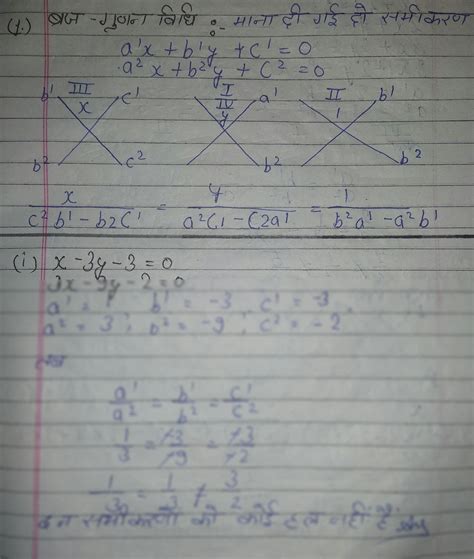 (1.) बज्र-गुणन विधि :- माना दी गई दो समीकरण
a¹x + b¹y + c¹ = 0
a²x + b²y + c² = 0
III I II
b¹ x c¹ IV y a¹ 1 b¹
b² c² b² b²
x/(c²b¹ - b2c¹) = y/(a²c1 - c2a¹) = 1/(b²a¹ - a²b¹)
(i) x - 3y - 3 = 0
3x - 9y - 2 = 0
a¹ = 1, b¹ = -3, c¹ = -3
a² = 3, b² = -9, c² = -2
a¹/a² = b¹/b² = c¹/c²
1/3 = -3/-9 = -3/-2
1/3 = 1/3 ≠ 3/2
इन समीकरणों को कोई हल नहीं है